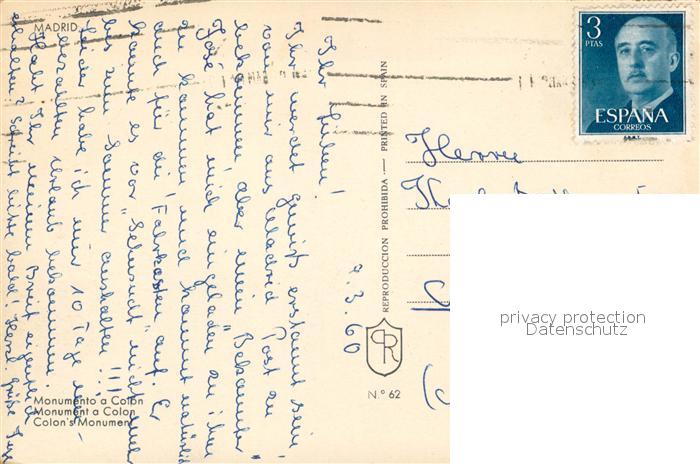 MADRID
Ihr Lieben!
Ihr werdet gewiß erstaunt sein
von mir aus Madrid Post zu
bekommen, aber mein "Bekannter"
José hat mich eingeladen zu ihm
zu kommen und kommt natürlich
auch für die Fahrkosten auf. Er
konnte es vor "Sehnsucht" nicht mehr
bis zum Sommer aushalten!!!
Leider habe ich nur 10 Tage
bezahlten Urlaub bekommen.
Habt Ihr meinen Brief eigentlich
erhalten? Schreibt bitte bald! Herzl. Grüße
9.3.60
Monumento a Colón
Monument a Colon
Colon's Monument
REPRODUCCION PROHIBIDA — PRINTED IN SPAIN
N.º 62
3
PTAS
ESPAÑA
CORREOS
Herrn
privacy protection
Datenschutz